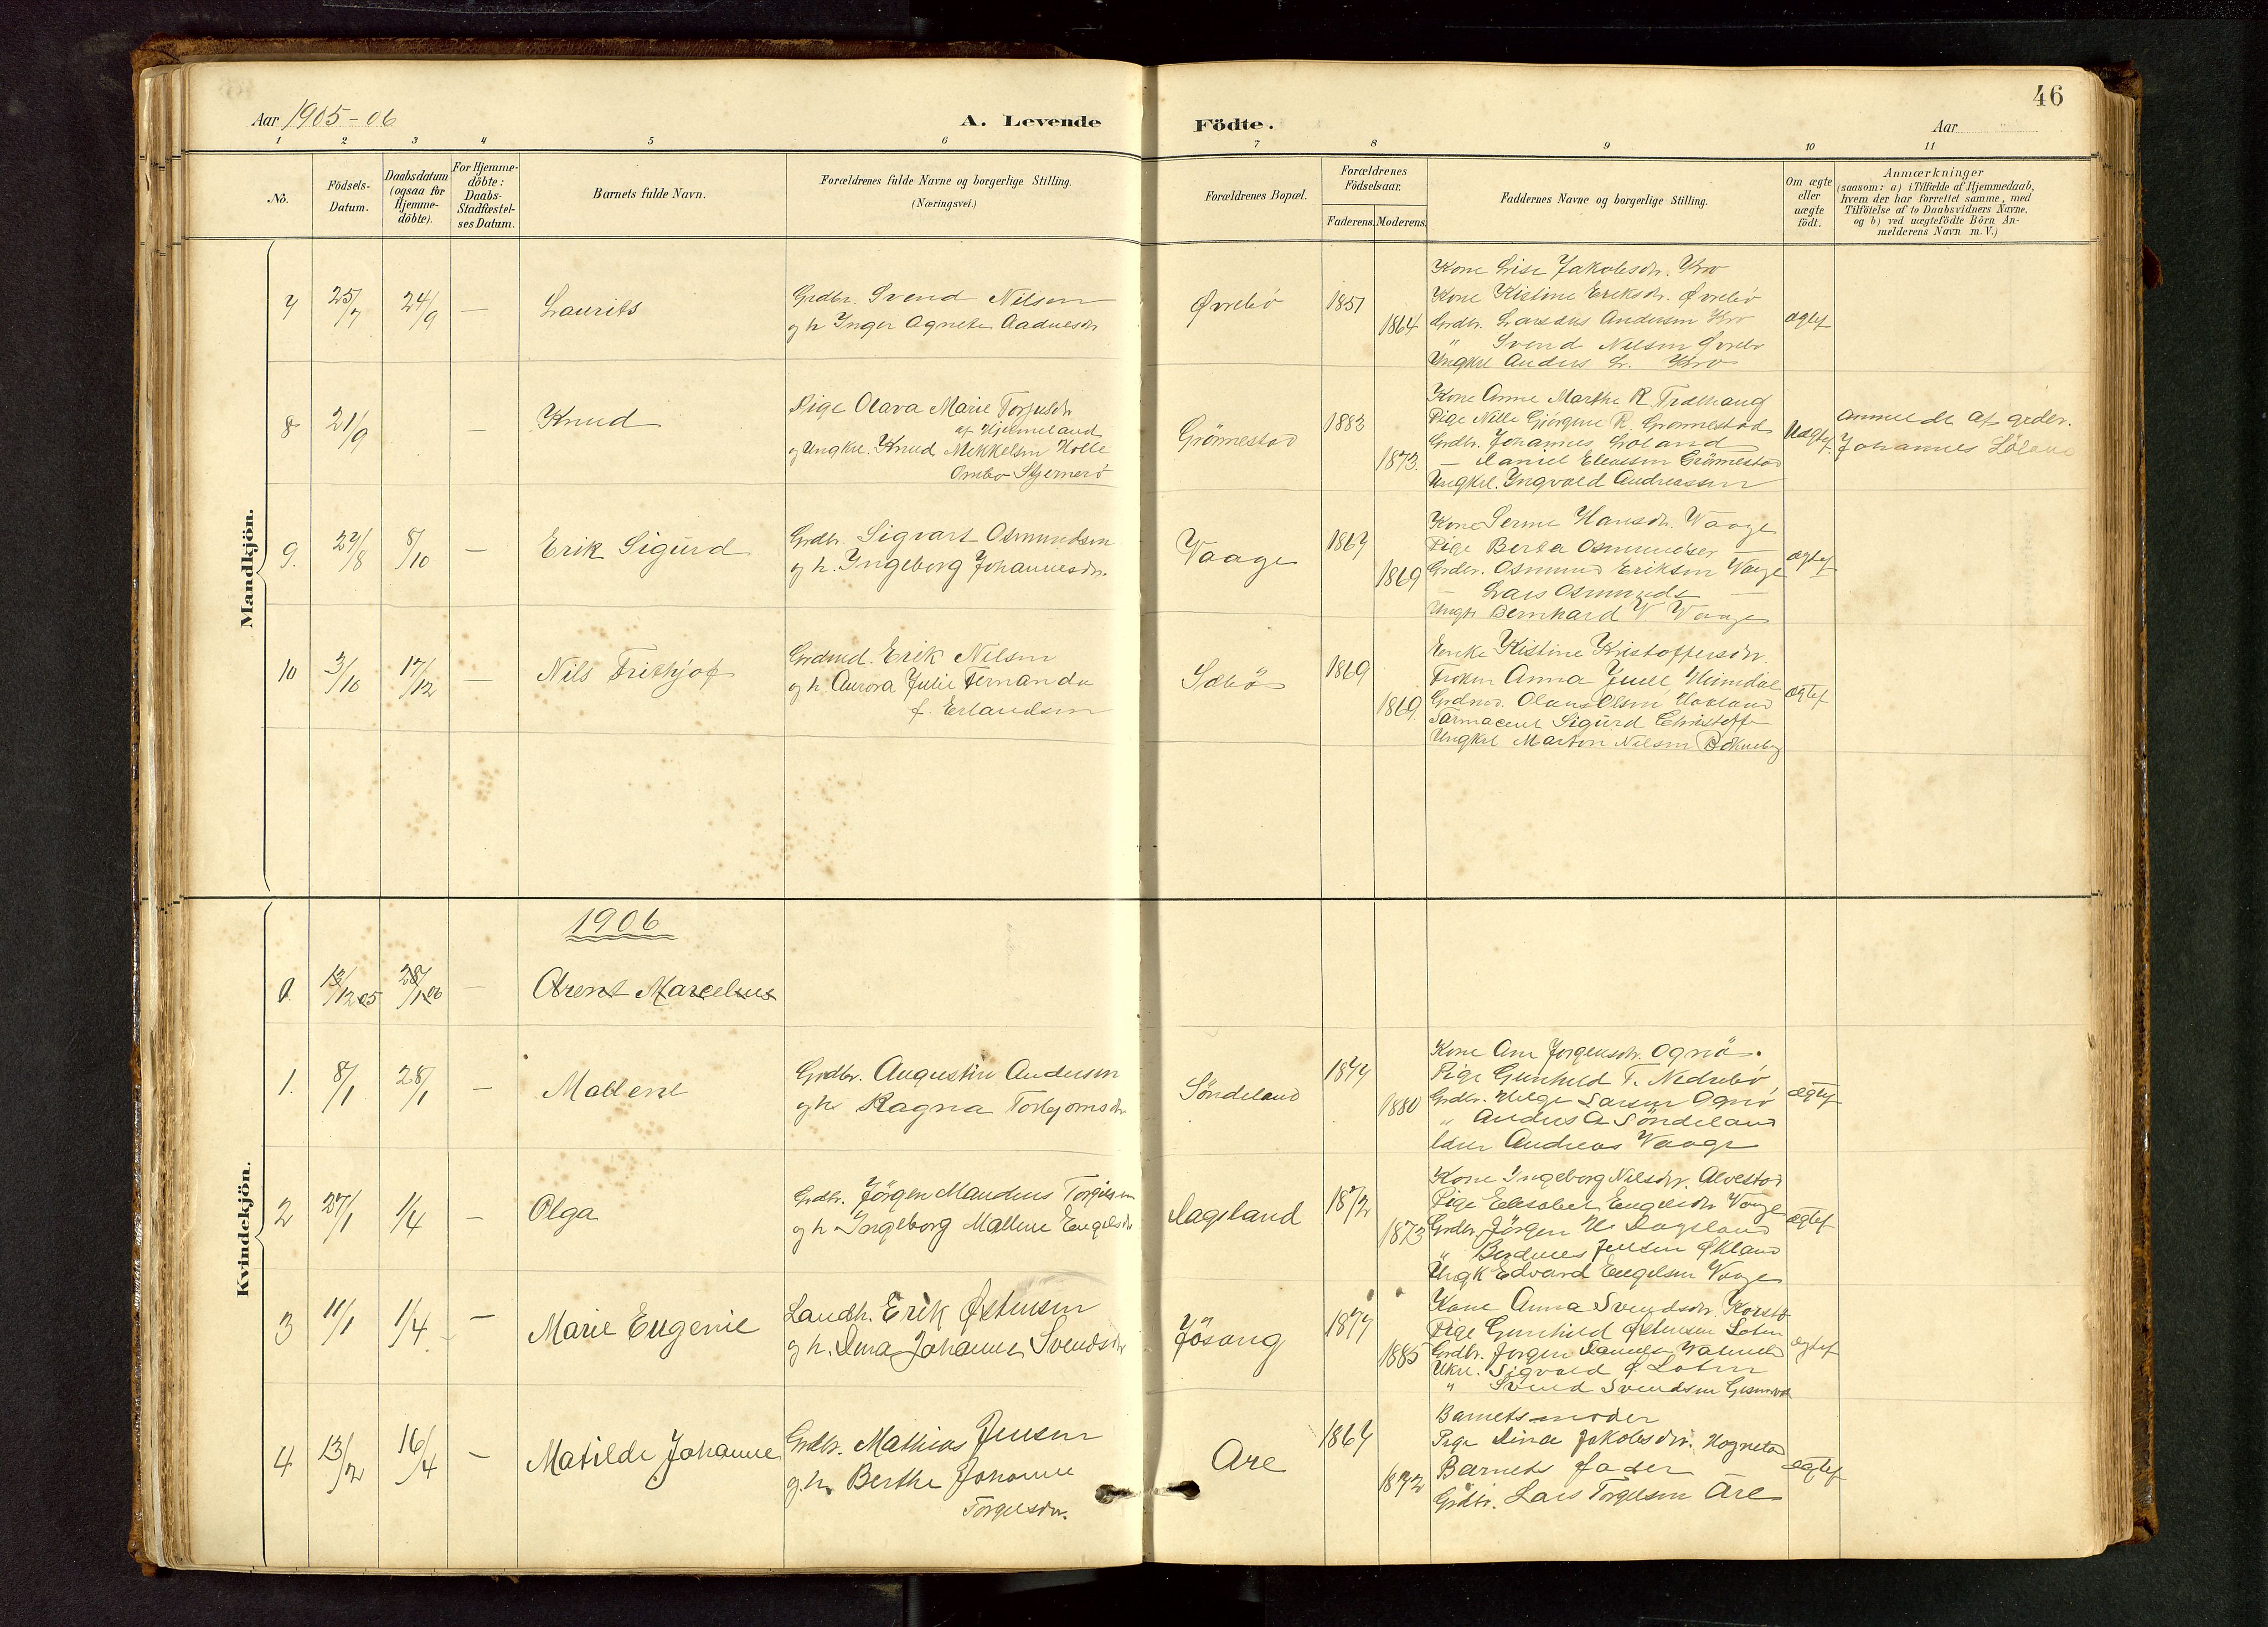 46
Aar 1905-06
A. Levende Födte.
Aar
1 2 3 4 5 6 7 8 9 10 11
No.
Födsels-Datum.
Daabsdatum (ogsaa for Hjemme-döbte).
For Hjemme-döbte: Daabs-Stadfæstel-ses Datum.
Barnets fulde Navn.
Forældrenes fulde Navne og borgerlige Stilling. (Næringsvei.)
Forældrenes Bopæl.
Forældrenes Födselsaar.
Faderens. Moderens.
Faddernes Navne og borgerlige Stilling.
Om ægte eller uægte födt.
Anmærkninger
(saasom: a) i Tilfælde af Hjemmedaab,
hvem der har forrettet samme, med
Tilföielse af to Daabsvidners Navne.
og b) ved uægtefödte Börn An-
melderens Navn m. V.)
Mandkjön.
7 25/7 24/9 — Laurits
Grdbr. Svend Nilsen
og h Inger Agnete Aadnesdr
Øvrebö 1851 1864
Kone Lise Jakobsdr.
Kone Kistine Eriksdr. Øvrebö
Grdbr. Andersen
" Svend Nilsen Øvrebö
Ungkrl Anders L.
ægtef
8 21/9 — Knud
Pige Olava Marie
af Hjelmeland
og Ungkrl. Knud Mikkelsen
Ombo Sjernerö
Grönnestad 1883 1873.
Kone Anne Marthe R.
Pige Nille R. Grönnestad
Grdbr. Johannes Loland
— Daniel Eliassen Grönnestad
Ungkrl. Ingvald Andreassen
Uægtef.
anmeldt af grdbr.
Johannes
9. 27/8 8/10 — Erik Sigurd
Grdbr. Sigvart Osmundsen
og h. Ingeborg Johannesdr.
Vaage 1867 1869
Kone Serine Hansdr. Vaage
Pige Berta Osmundser —
Grdbr. Osmund Eriksen Vaage
— Lars Osmunds —
Ungk Bernhard V. Vaage
ægtef
10 3/10 17/12 — Nils Frithjof
Grdmd. Erik Nilsen
og h. Aurora Julie Fernanda
f. Erlandsen
Sæbö 1869 1869.
Enke Kistine Kristoffersdr.
Fröken Anna Juell
Grdmd. Olaus Olsen
Farmaceut Sigurd
Ungkrl Marton Nilsen
ægtef
Kvindekjön.
1906
13/12 05 28/1 06 — Arent Marcelius
1. 8/1 28/1 — Mallene
Grdbr. Augustin Andersen
og h Ragna Torbjørnsdr
Söndeland 1877 1880
Kone Ane Jorgensdr. Ognö.
Pige Gunhild T. Nedrebö
Grdbr. Helge Larsen Ognö
" Anders A Söndeland
Lærer Andreas Vaage
ægtef
2 27/1 1/4 — Olga
Grdbr. Jörgen Maudeus Torgilsen
og h Ingeborg Malline Engelsdr
Dagsland 1872 1873
Kone Ingeborg Nilsdr. Alvestad
Pige Elisabet Engelsdr Vaage
Grdbr. Jörgen H. Dagsland
" Berdines Jensen Økland
Ungk Edvard Engelsen Vaage
ægtef
3 11/1 1/4 — Marie Eugenie
Landh. Erik Østensen
og h. Dina Johanne Svendsdr
Jösang 1877 1885
Kone Anna Svendsdr.
Pige Gunhild Østensen
Grdbr. Jorgen
Ukrl. Sigvald Ø.
" Svend Svendsen
ægtef
4 13/2 16/4 — Matilde Johanne
Grdbr. Mathias Jensen
og h. Berthe Johanne
Torgelsdr.
Are 1867 1872
Barnets moder
Pige Dina Jakobsdr.
Barnets fader
Grdbr. Lars Torgelsen Are
ægtef